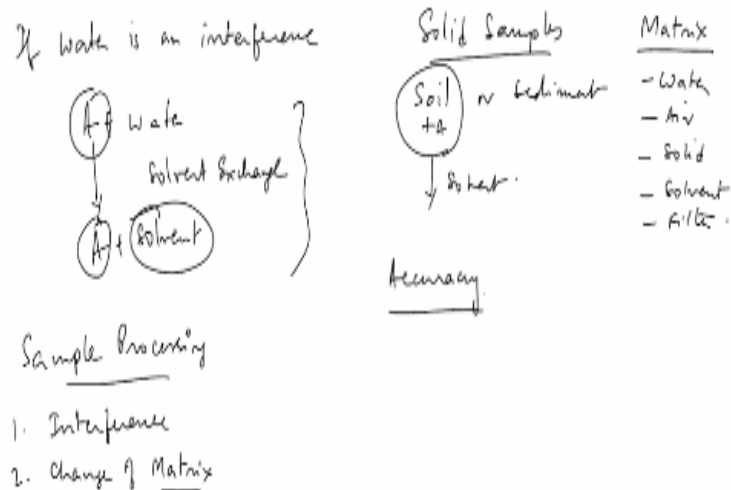 If water is an interference
A + water
Solvent Exchange
A + Solvent
Sample Processing
1. Interference
2. Change of Matrix
Solid Samples
Soil or Sediment
+A
Solvent.
Accuracy
Matrix
- Water
- Air
- Solid
- Solvent
- Filter.